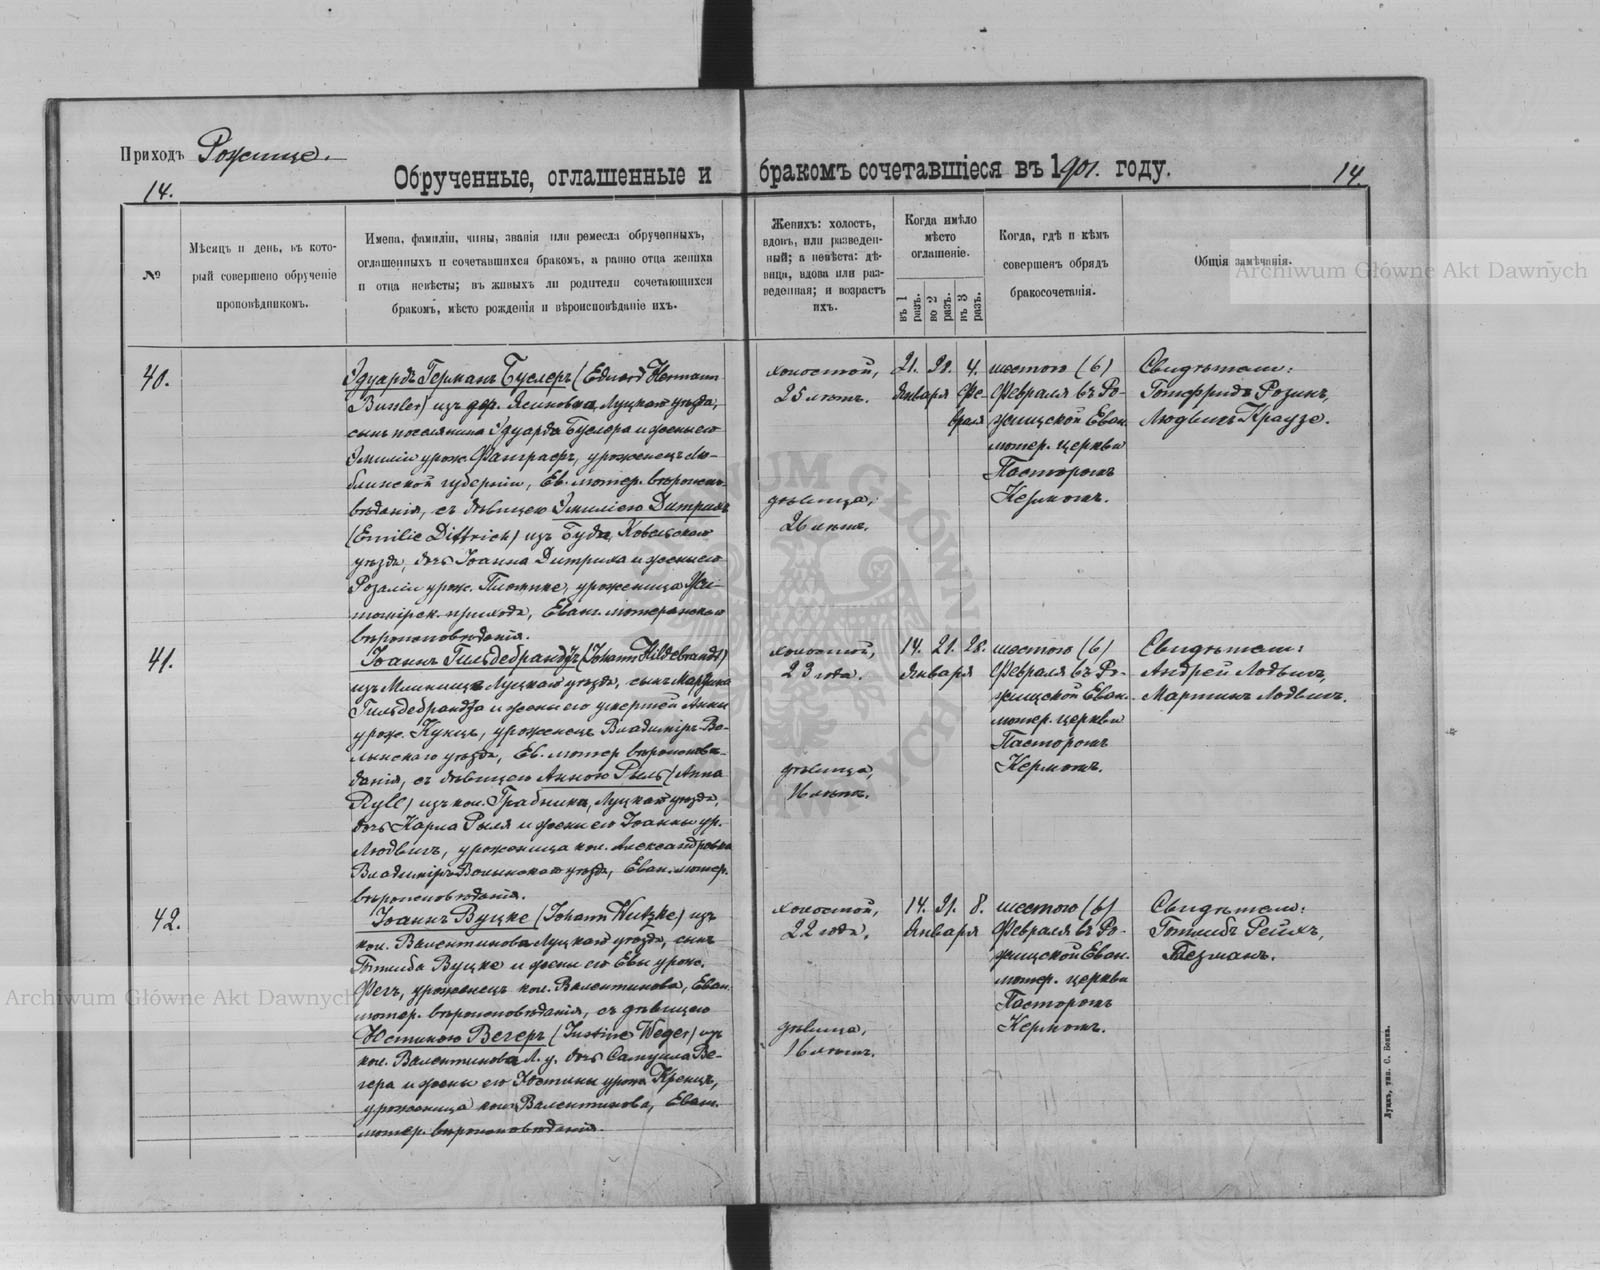 Приходъ Рожище.
14.
Обрученные, оглашенные и бракомъ сочетавшіеся въ 1901. году.
14.
№
Мѣсяцъ и день, въ кото-
рый совершено обрученіе
проповѣдникомъ.
Имена, фамиліи, чины, званія или ремесла обрученныхъ,
оглашенныхъ и сочетавшихся бракомъ, а равно отца жениха
и отца невѣсты; въ живыхъ ли родители сочетающихся
бракомъ, мѣсто рожденія и вѣроисповѣданіе ихъ.
Женихъ: холостъ,
вдовъ, или разведен-
ный; а невѣста: дѣ-
вица, вдова или раз-
веденная; и возрастъ
ихъ.
Когда имѣло
мѣсто
оглашеніе.
въ 1
разъ.
во 2
разъ.
въ 3
разъ.
Когда, гдѣ и кѣмъ
совершенъ обрядъ
бракосочетанія.
Общія замѣчанія.
Archiwum Główne Akt Dawnych
40.
Эдуардъ Герман Буслеръ (Eduard Hermann
Bussler) изъ дер. Ясиновка, Луцкаго уѣзда,
сынъ поселянина Эдуарда Буслера и жены его
Эмиліи урож. уроженецъ Лю-
блинской губерніи, Ев. лютер. вѣроиспо-
вѣданія, съ дѣвицею Эмиліею Дитрихъ
(Emilie Dittrich) изъ Буда, Ковельскаго
уѣзда, дочь Іоанна Дитриха и жены его
Розаліи урож. уроженица Жи-
томірск. прихода, Еванг. лютеранскаго
вѣроисповѣданія.
холостой,
25 лѣтъ.
дѣвица,
26 лѣтъ.
21. 28. 4.
Января Фе-
враля
шестого (6)
Февраля въ Ро-
жищской Еван.
лютер. церкви
Пасторомъ
Кермомъ.
Свидѣтели:
Готфридъ Розинъ,
Людвигъ Краузе.
41.
Іоаннъ Гильдебрандтъ (Johann Hildebrandt)
изъ Луцкаго уѣзда, сынъ Мартина
Гильдебрандта и жены его умершей Анны
урож. Кунцъ, уроженецъ Владиміръ-Во-
лынскаго уѣзда, Ев. лютер вѣроисповѣ-
данія, съ дѣвицею Анною Рыль (Anna
Ryll) изъ кол. Грабникъ, Луцкаго уѣзда,
дочь Карла Рыля и жены его Іоанны ур.
Людвигъ, уроженица кол. Александровка
Владиміръ-Волынскаго уѣзда, Еван. лютер.
вѣроисповѣданія.
холостой,
23 года.
дѣвица,
16 лѣтъ.
14. 21. 28.
Января
шестого (6)
Февраля въ Ро-
жищской Еван.
лютер. церкви
Пасторомъ
Кермомъ.
Свидѣтели:
Андрей Людвигъ,
Мартинъ Людвигъ.
42.
Іоаннъ Вуцке (Johann Wutzke) изъ
кол. Валентинова Луцкаго уѣзда, сынъ
Готлиба Вуцке и жены его Евы урож.
уроженецъ кол. Валентинова, Еван.
лютер. вѣроисповѣданія, съ дѣвицею
Юстиною Вегеръ (Justine Weger) изъ
кол. Валентинова Л. у. дочь Самуила Ве-
гера и жены его Юстины урож. Кренцъ,
уроженица кол. Валентинова, Еван.
лютер. вѣроисповѣданія.
холостой,
22 года.
дѣвица,
16 лѣтъ.
14. 21. 8.
Января
шестого (6)
Февраля въ Ро-
жищской Еван.
лютер. церкви
Пасторомъ
Кермомъ.
Свидѣтели:
Готлибъ Рейхъ,
Тезманъ.
Archiwum Główne Akt Dawnych